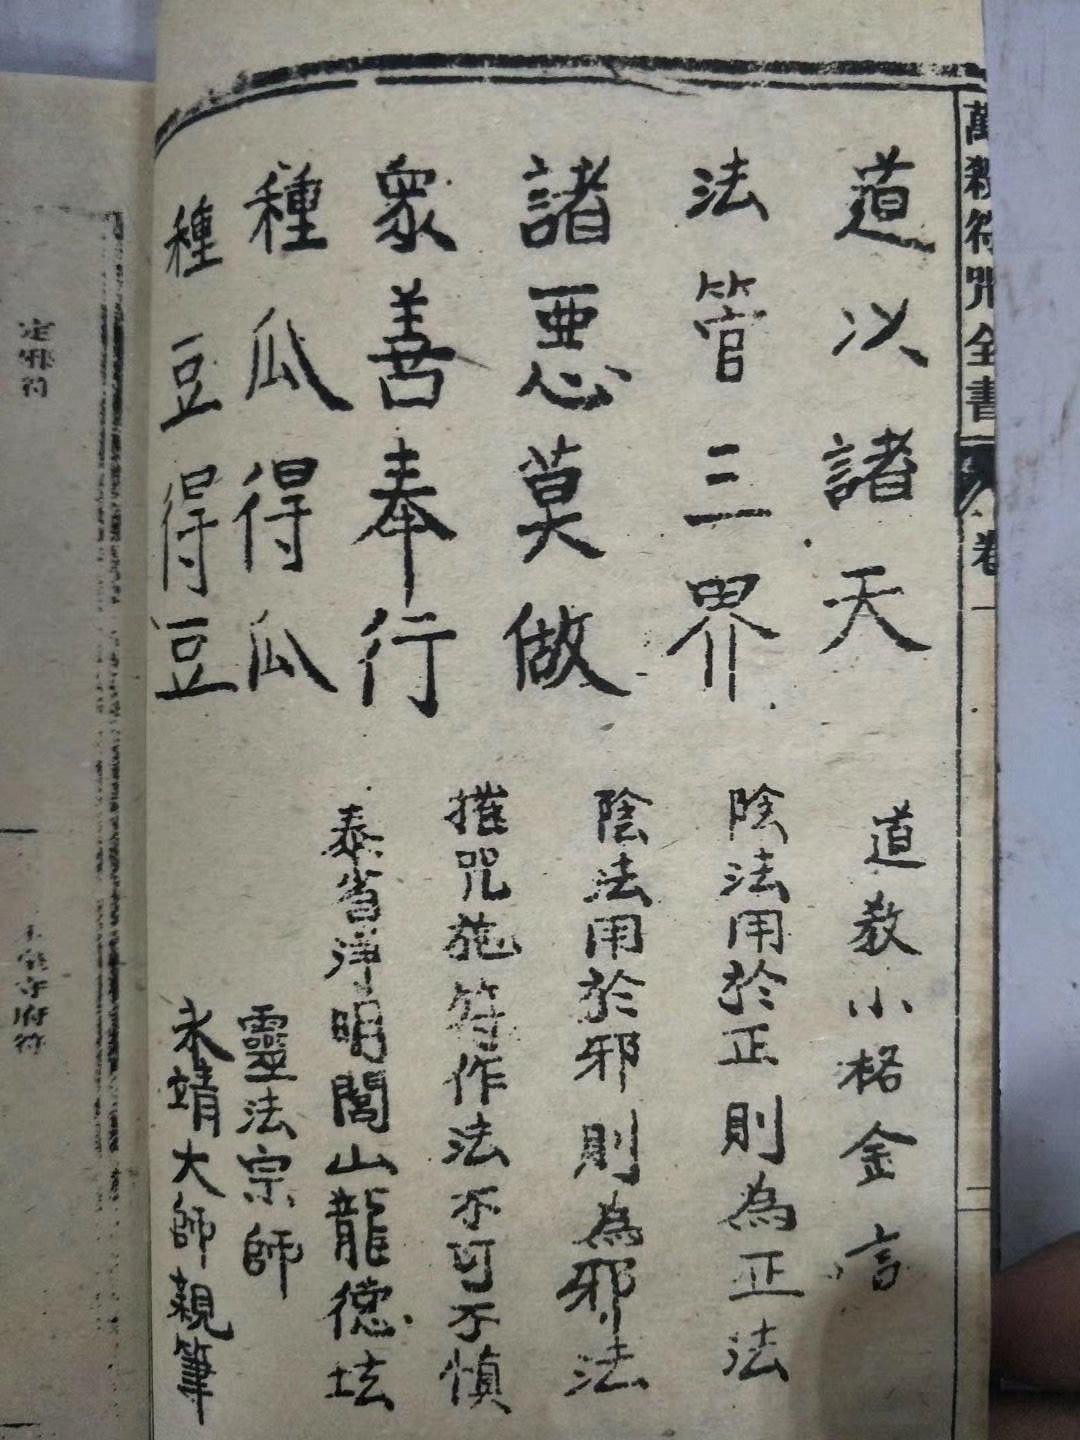 萬殺符咒全書
卷一
二
道以諸天
法管三界
諸惡莫做
衆善奉行
種瓜得瓜
種豆得豆
道教小格金言
陰法用於正則為正法
陰法用於邪則為邪法
摧咒施符作法不可不慎
泰省淨明閭山龍德坛
靈法宗師
永靖大師親筆
定邪符